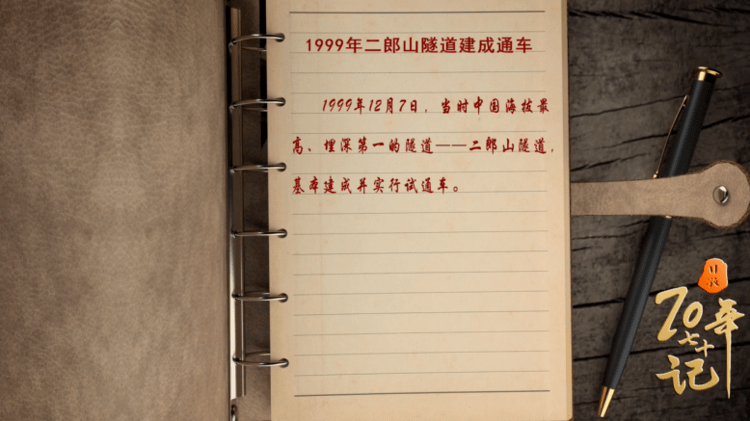 1999年二郎山隧道建成通车
1999年12月7日，当时中国海拔最
高、埋深第一的隧道——二郎山隧道，
基本建成并实行试通车。
70年
七十
记